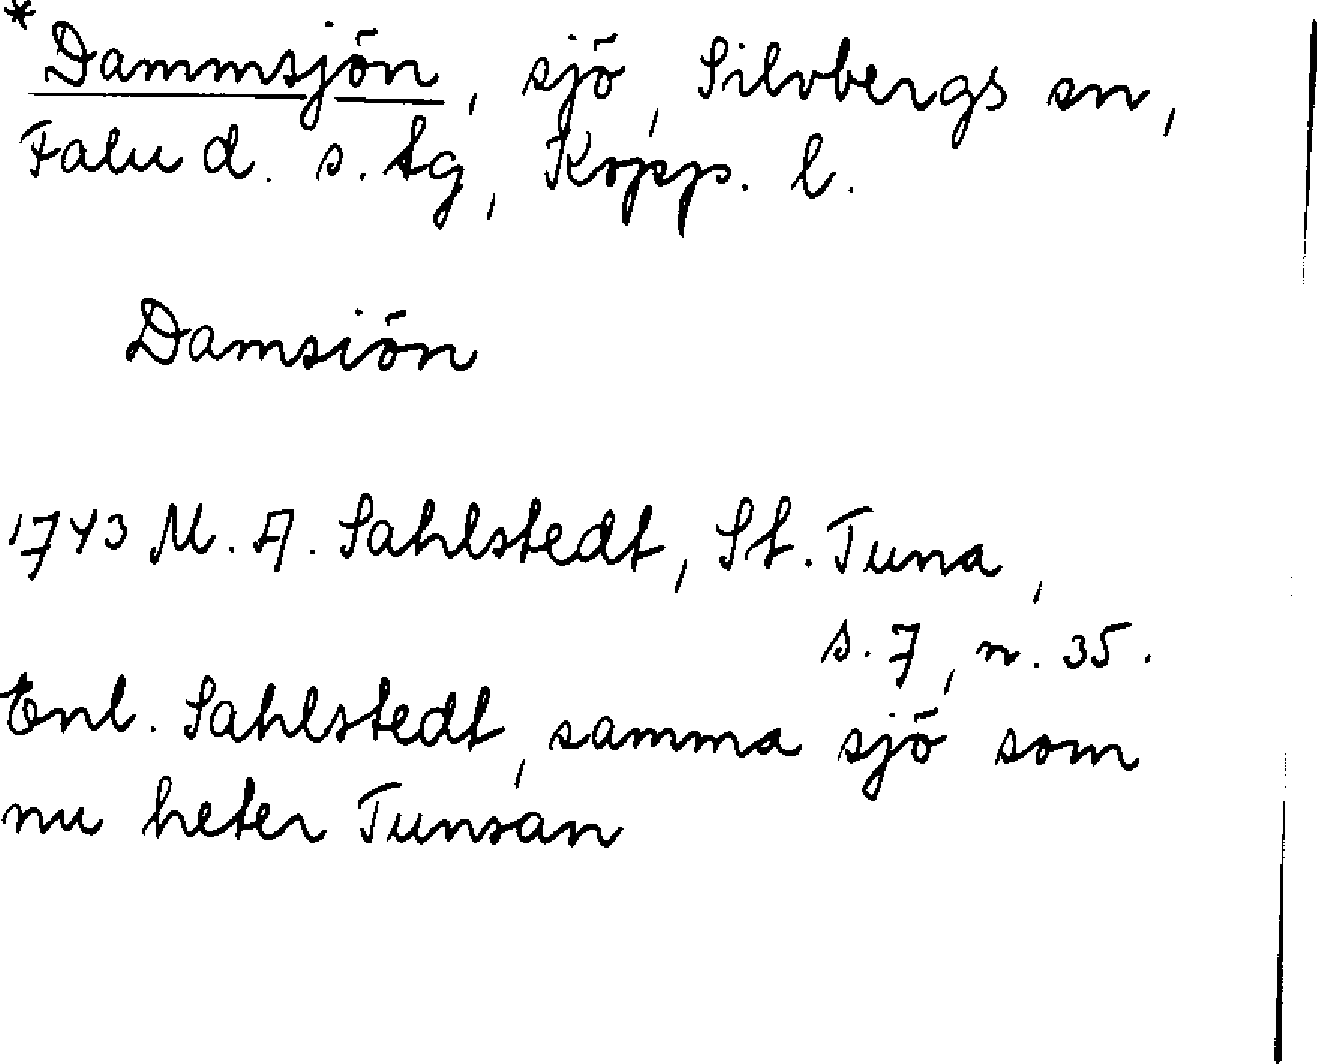 * Dammsjön, sjö, Silvbergs sn,
Falu d. s. tg, Kopp. l.
Damsiön
1743 M. A. Sahlstedt, St. Tuna,
s. 7, n. 35.
Enl. Sahlstedt, samma sjö som
nu heter Tunsan